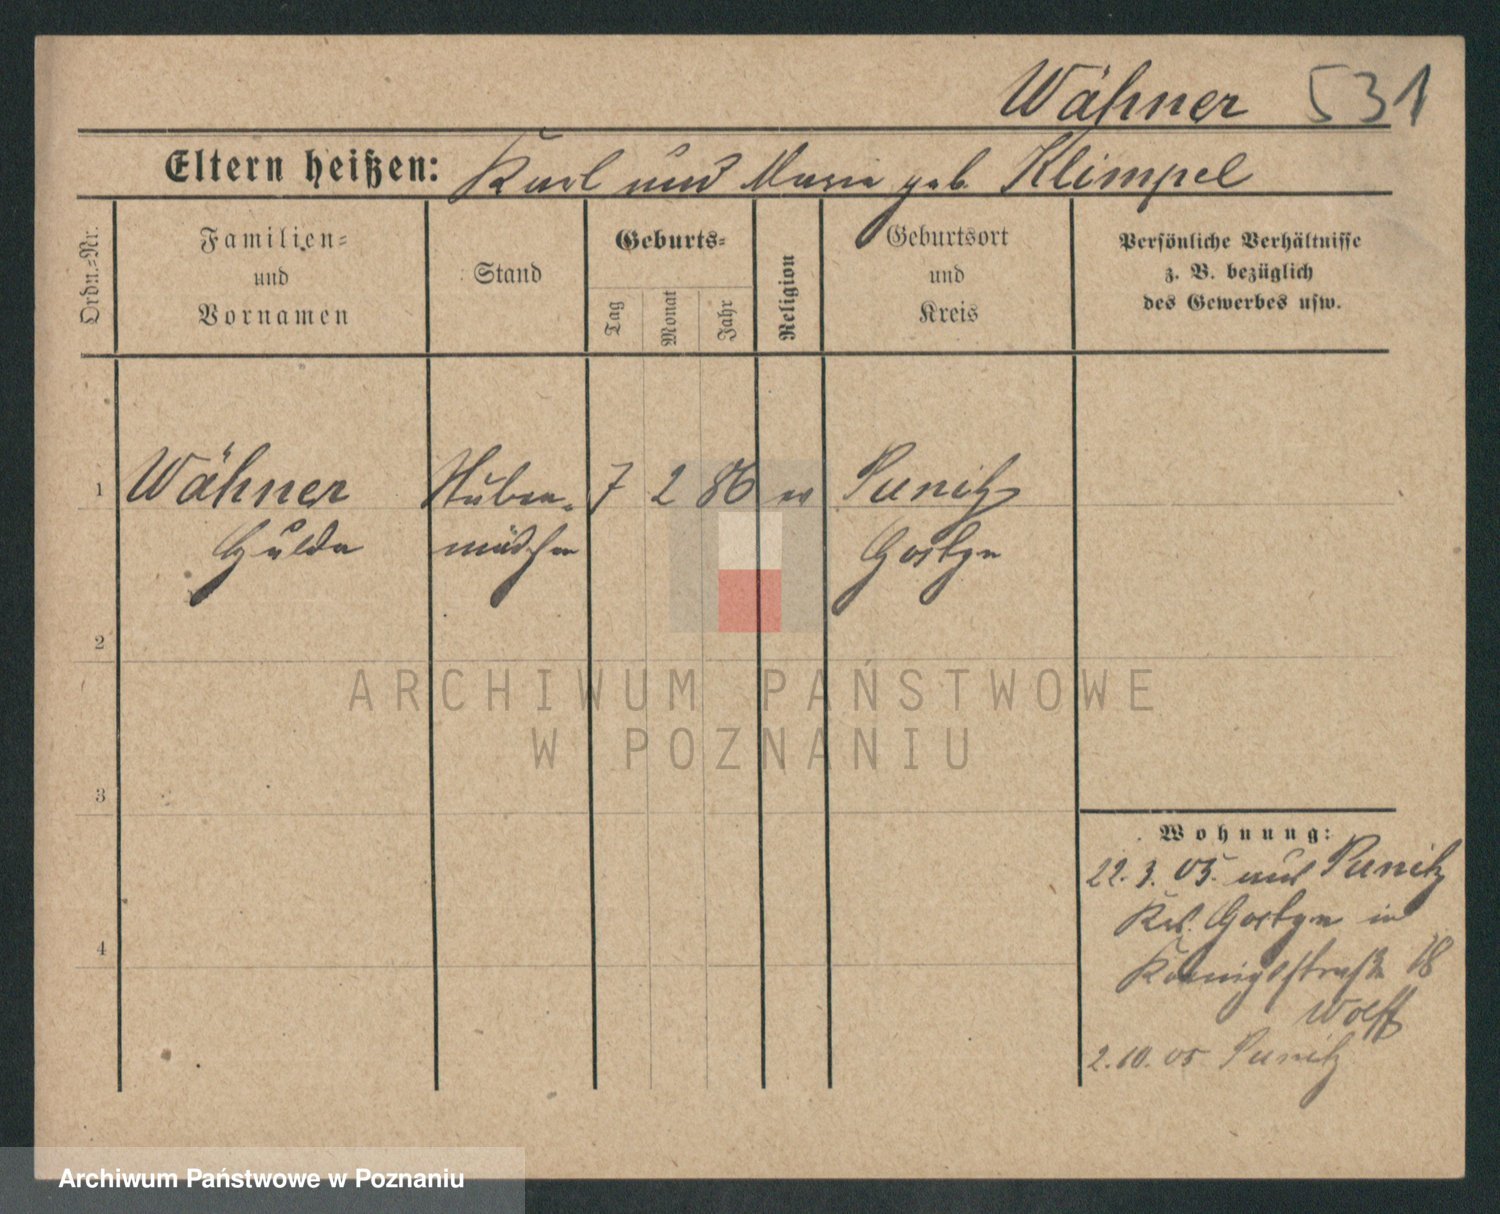 Wähner 531
Eltern heißen: Karl und Maria geb. Klimpel
Ordn.-Nr.
Familien-
und
Vornamen
Stand
Geburts-
Tag
Monat
Jahr
Religion
Geburtsort
und
Kreis
Persönliche Verhältnisse
z. B. bezüglich
des Gewerbes usw.
1 Wähner Stuben- 7 2 86 ev Punitz
Hulda mädchen Gostyn
2
3
4
Wohnung:
22.3.05. aus Punitz
Krs. Gostyn in
Königsstraße 18
Wolff
2.10.05 Punitz
ARCHIWUM PAŃSTWOWE
W POZNANIU
Archiwum Państwowe w Poznaniu